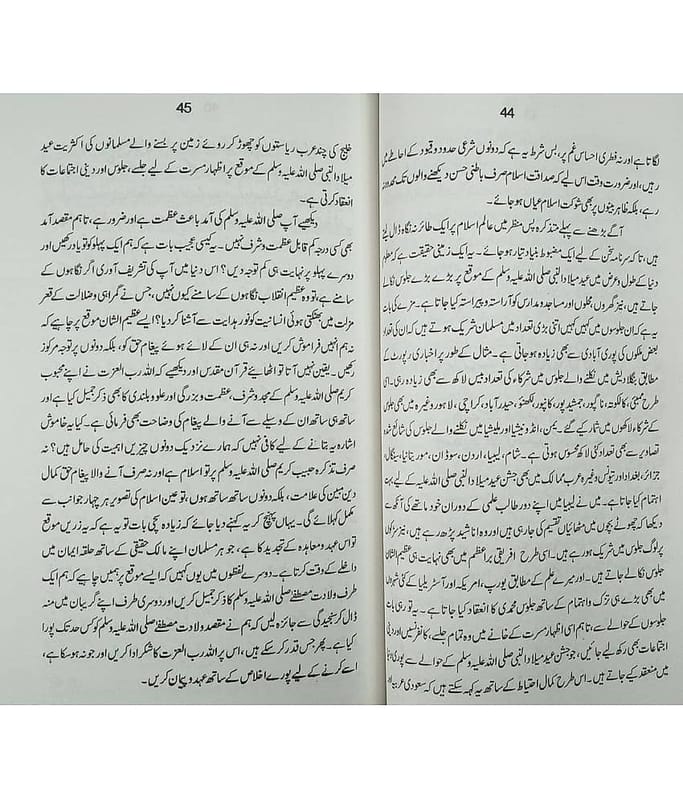 44
لگاتا ہے اور نہ فطری احساس غم پر، بس شرط یہ ہے کہ دونوں شرعی حدود و قیود کے احاطے میں
رہیں، اور ضرورت وقت اس لیے کہ صداقت اسلام صرف باطنی حسن دیکھنے والوں تک محدود نہ
رہے، بلکہ ظاہر بینوں پر بھی شوکت اسلام عیاں ہو جائے۔
آگے بڑھنے سے پہلے متذکرہ پس منظر میں عالم اسلام پر ایک طائرانہ نگاہ ڈال لیتے
ہیں، تاکہ سرنامہ سخن کے لیے ایک مضبوط بنیاد تیار ہو جائے۔ یہ ایک زمینی حقیقت ہے کہ معلوم
دنیا کے طول و عرض میں عید میلاد النبی صلی اللہ علیہ وسلم کے موقع پر بڑے بڑے جلوس نکالے
جاتے ہیں، نیز گھروں، محلوں اور مساجد و مدارس کو آراستہ و پیراستہ کیا جاتا ہے۔ مزے کی بات
یہ ہے کہ ان جلوسوں میں کہیں کہیں اتنی بڑی تعداد میں مسلمان شریک ہوتے ہیں کہ ان کی تعداد
بعض ملکوں کی پوری آبادی سے بھی زیادہ ہو جاتی ہے۔ مثال کے طور پر اخباری رپورٹ کے
مطابق بنگلا دیش میں نکلنے والے جلوس میں شرکاء کی تعداد بیس لاکھ سے بھی زیادہ رہی۔ اسی
طرح ممبئی، کالکوتہ، ناگپور، جمشید پور، کانپور، لکھنؤ، حیدرآباد، کراچی، لاہور وغیرہ میں بھی جلوس
کے شرکاء لاکھوں میں شمار کیے گئے۔ یمن، انڈونیشیا اور ملیشیا میں نکلنے والے جلوس کی شائع شدہ
تصاویر سے بھی تعداد کئی لاکھ محسوس ہوتی ہے۔ شام، لیبیا، اردن، سوڈان، موریتانیا، سینگال،
جزائر، بغداد اور تیونس وغیرہ عرب ممالک میں بھی جشن عید میلاد النبی صلی اللہ علیہ کے لیے بہت
اہتمام کیا جاتا ہے۔ میں نے لیبیا میں اپنے دور طالب علمی کے دوران خود ماتھے کی آنکھ سے
دیکھا کہ چھوٹے بچوں میں مٹھائیاں تقسیم کی جا رہی ہیں اور وہ اناشید پڑھ رہے ہیں، نیز سڑکوں
پر لوگ جلوس میں شریک ہو رہے ہیں۔ اسی طرح افریقی براعظم میں بھی نہایت ہی عظیم الشان
جلوس نکالے جاتے ہیں۔ اور میرے علم کے مطابق یورپ، امریکہ اور آسٹریلیا کے کئی شہروں
میں بھی بڑے ہی تزک و اہتمام کے ساتھ جلوس محمدی کا انعقاد کیا جاتا ہے۔ یہ تو رہی بات
جلوسوں کے حوالے سے، تاہم اسی اظہار مسرت کے خانے میں وہ تمام جلسے، کانفرنسیں اور دینی
اجتماعات بھی رکھ لیے جائیں، جو جشن عید میلاد النبی صلی اللہ علیہ وسلم کے حوالے سے پوری دنیا
میں منعقد کیے جاتے ہیں۔ اس طرح کمال احتیاط کے ساتھ یہ کہہ سکتے ہیں کہ سعودی عربیہ اور
45
خلیج کی چند عرب ریاستوں کو چھوڑ کر روئے زمین پر بسنے والے مسلمانوں کی اکثریت عید
میلاد النبی صلی اللہ علیہ وسلم کے موقع پر اظہار مسرت کے لیے جلسے، جلوس اور دینی اجتماعات کا
انعقاد کرتی ہے۔
دیکھیے آپ صلی اللہ علیہ وسلم کی آمد باعث عظمت ہے اور ضرور ہے، تاہم مقصد آمد
بھی کسی درجہ کم قابل عظمت و شرف نہیں۔ یہ کیسی عجیب بات ہے کہ ہم ایک پہلو کو تو یاد رکھیں اور
دوسرے پہلو پر نہایت ہی کم توجہ دیں؟ اس دنیا میں آپ کی تشریف آوری اگر نگاہوں کے
سامنے ہے، تو وہ عظیم انقلاب نگاہوں کے سامنے کیوں نہیں، جس نے گمراہی و ضلالت کے قعر
مزلت میں بھٹکتی ہوئی انسانیت کو نور ہدایت سے آشنا کر دیا؟ ایسے عظیم الشان موقع پر چاہیے کہ
نہ ہم انہیں فراموش کریں اور نہ ہی ان کے لائے ہوئے پیغام حق کو، بلکہ دونوں پر توجہ مرکوز
رکھیں۔ یقین نہیں آتا تو اٹھائیے قرآن مقدس اور دیکھیے کہ اللہ رب العزت نے اپنے محبوب
کریم صلی اللہ علیہ وسلم کے مجد و شرف، عظمت و بزرگی اور علو و بلندی کا بھی ذکر جمیل کیا ہے اور
ساتھ ہی ساتھ ان کے وسیلے سے آنے والے پیغام کی وضاحت بھی فرمائی ہے۔ کیا یہ خاموش
اشارہ یہ بتانے کے لیے کافی نہیں کہ ہمارے نزدیک دونوں چیزیں اہمیت کی حامل ہیں؟ نہ
صرف تذکرہ حبیب کریم صلی اللہ علیہ وسلم پر تو اسلام ہے اور نہ صرف آنے والا پیغام حق کمال
دین مبین کی علامت، بلکہ دونوں ساتھ ساتھ ہوں، تو عین اسلام کی تصویر ہر چہار جوانب سے
مکمل کہلائے گی۔ یہاں پہنچ کر یہ کہنے دیا جائے کہ زیادہ سچی بات تو یہ ہے کہ یہ زریں موقع
تو اس عہد و معاہدہ کے تجدید کا ہے، جو ہر مسلمان اپنے مالک حقیقی کے ساتھ حلقہ ایمان میں
داخلے کے وقت کرتا ہے۔ دوسرے لفظوں میں یوں کہیں کہ ایسے موقع پر ہمیں چاہیے کہ ہم ایک
طرف ولادت مصطفےٰ صلی اللہ علیہ وسلم کا ذکر جمیل کریں اور دوسری طرف اپنے گریبان میں منہ
ڈال کر سنجیدگی سے جائزہ لیں کہ ہم نے مقصد ولادت مصطفےٰ صلی اللہ علیہ وسلم کو کس حد تک پورا
کیا ہے۔ پھر جس قدر کر سکے ہیں، اس پر اللہ رب العزت کا شکر ادا کریں اور جو نہ ہو سکا ہے،
اسے کرنے کے لیے پورے اخلاص کے ساتھ عہد و پیمان کریں۔